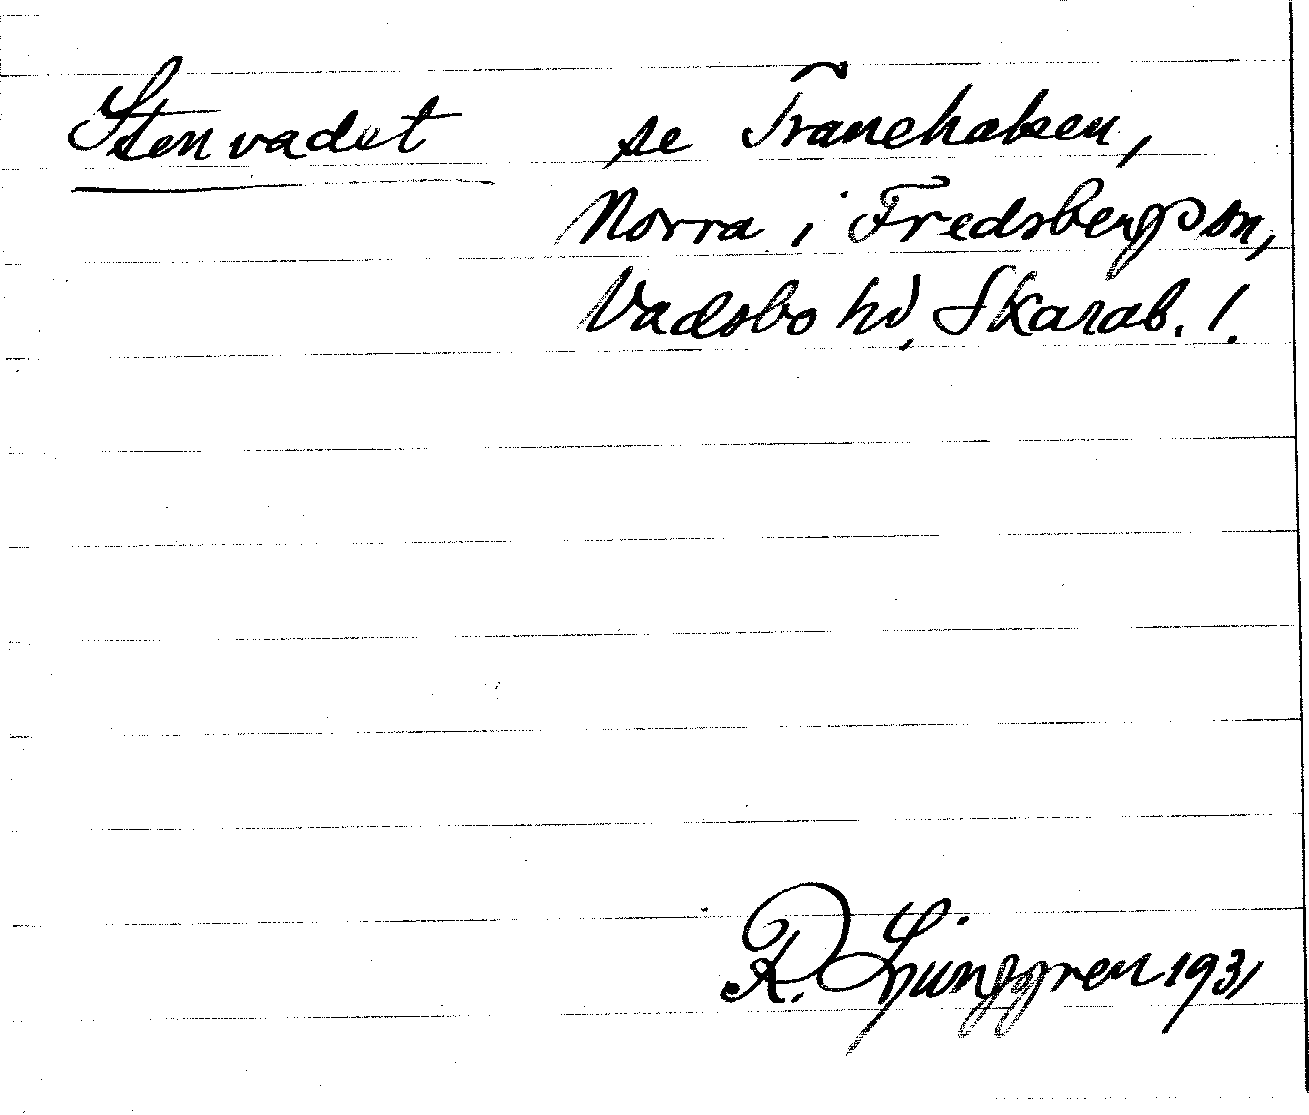 Stenvadet se Tranehaken,
Norra i Fredsberg sn,
Vadsbo hd, Skarab. l.
R. Ljunggren 1931